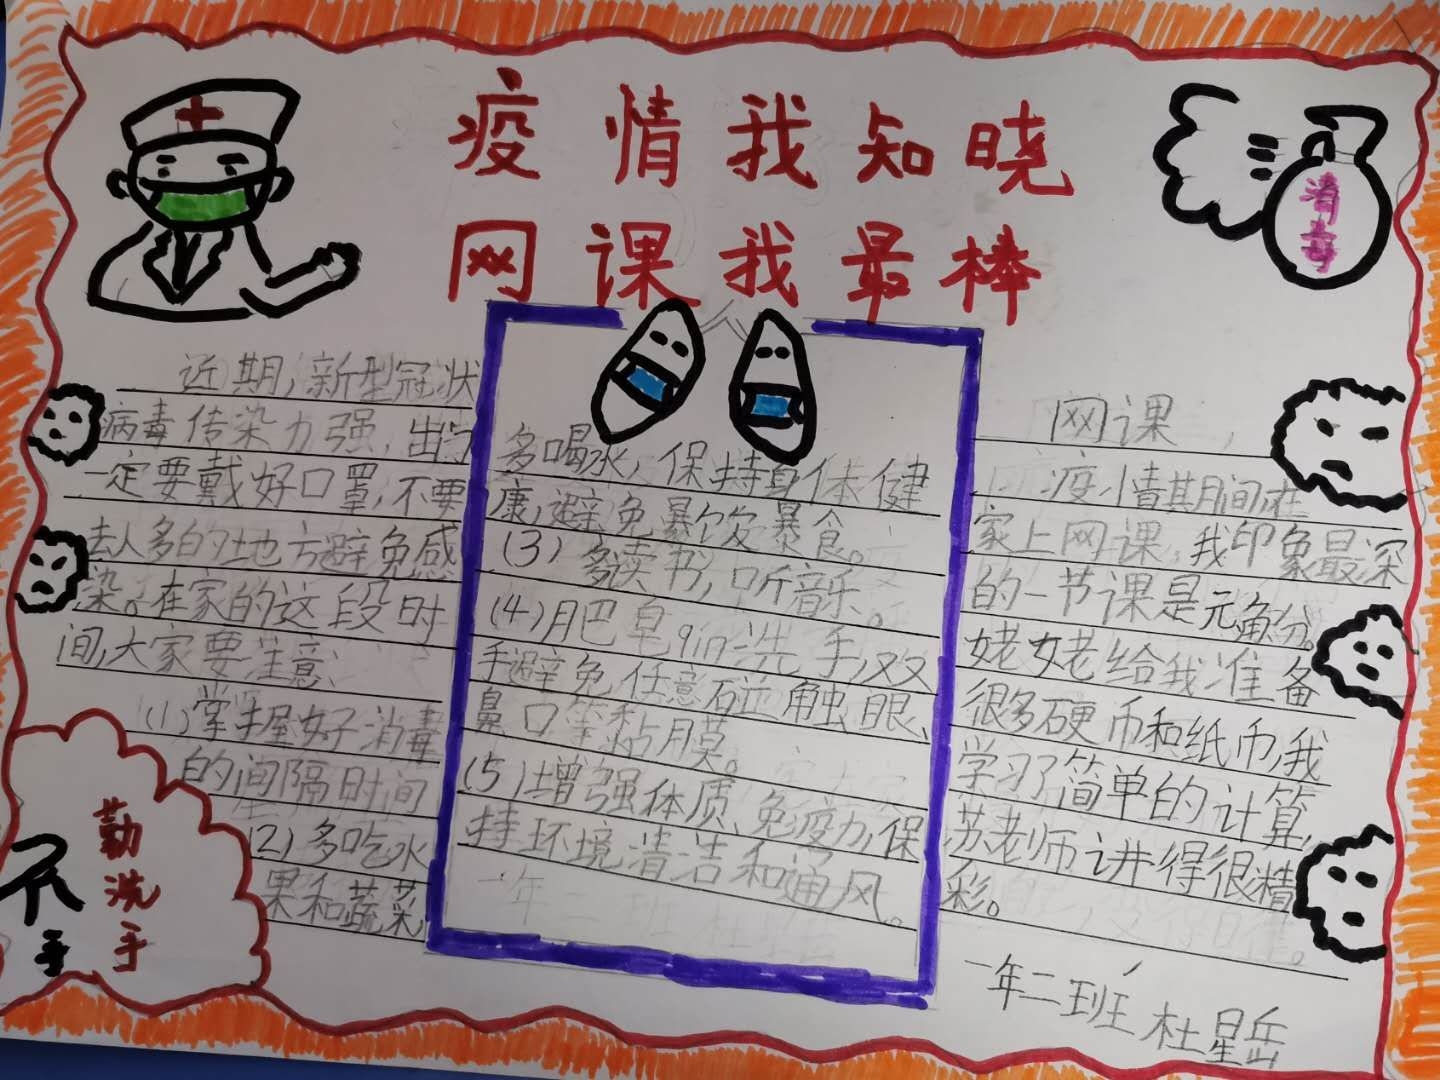 疫情我知晓
网课我最棒
消毒
近期,新型冠状
病毒传染力强,出门
一定要戴好口罩,不要
去人多的地方避免感
染。在家的这段时
间,大家要注意
(1)掌握好消毒
的间隔时间
(2)多吃水
果和蔬菜,
多喝水,保持身体健
康,避免暴饮暴食。
(3)多读书,听音乐。
(4)肥皂qin洗手,双
手避免任意碰触眼、
鼻口等黏膜。
(5)增强体质、免疫力,保
持环境清洁和通风。
网课,
疫情期间在
家上网课,我印象最深
的一节课是元角分。
姥姥给我准备
很多硬币和纸币我
学习了简单的计算,
苏老师讲得很精
彩。
一年二班 杜星岳
勤洗手
手